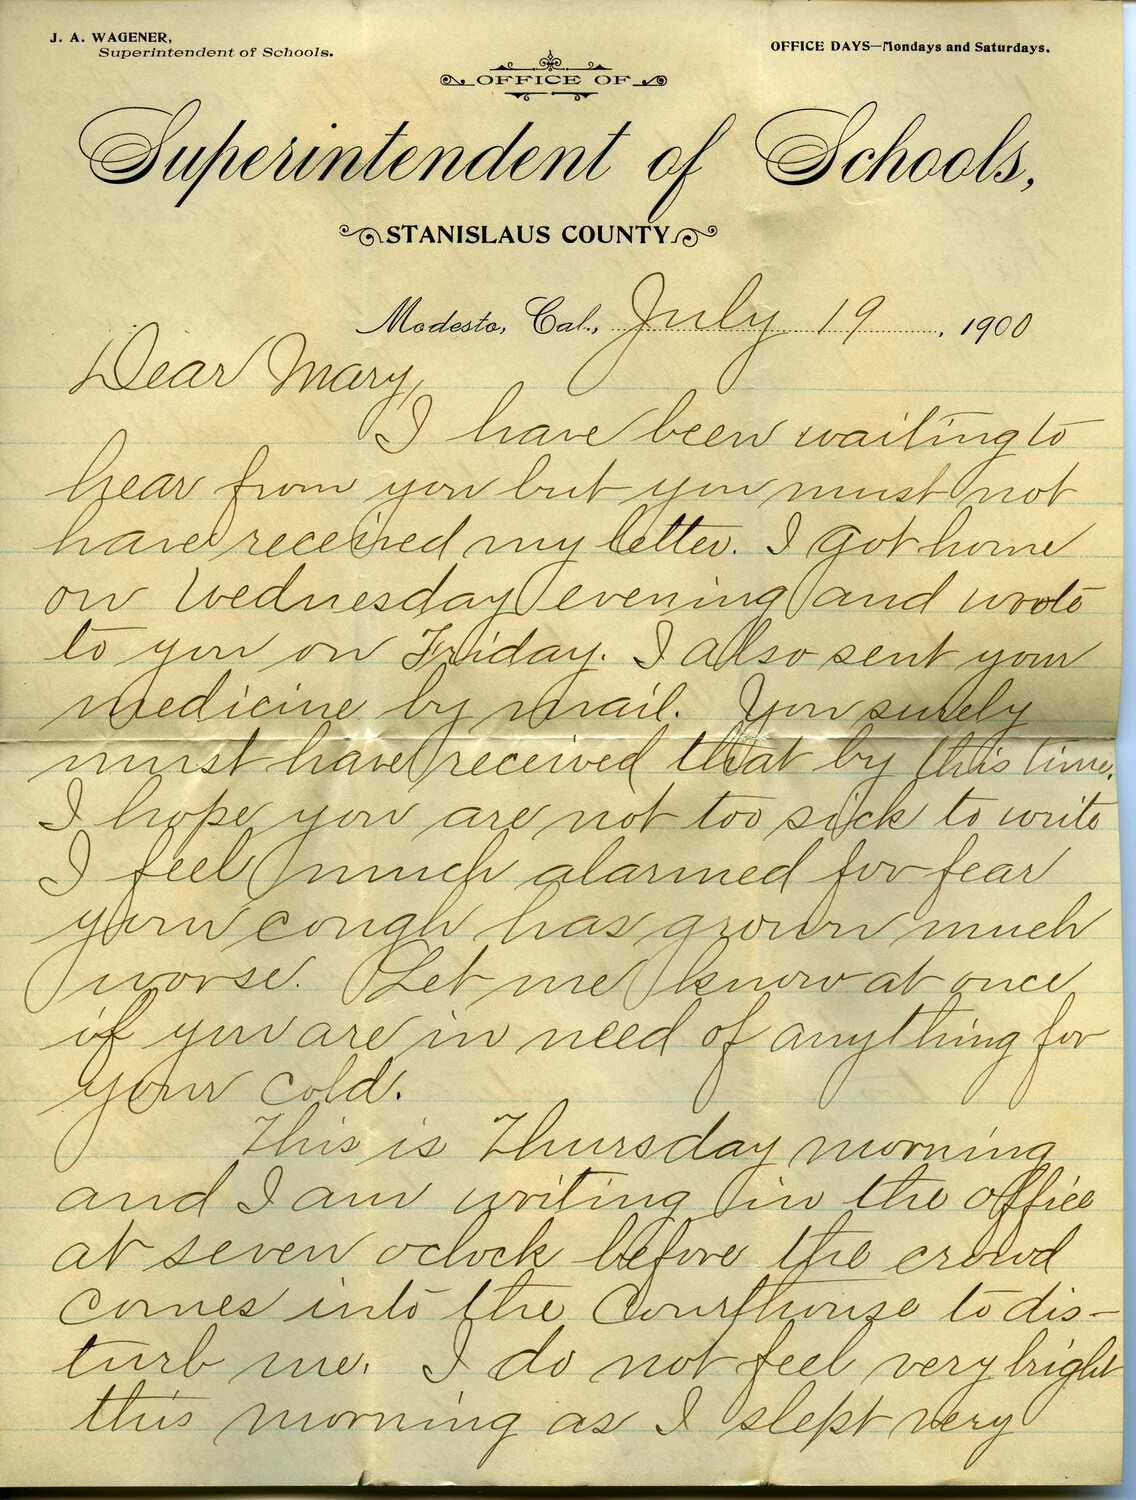 J. A. WAGENER,
Superintendent of Schools.
OFFICE DAYS—Mondays and Saturdays.
OFFICE OF
Superintendent of Schools,
STANISLAUS COUNTY
Modesto, Cal., July 19, 1900
Dear Mary,
I have been waiting to
hear from you but you must not
have received my letter. I got home
on Wednesday evening and wrote
to you on Friday. I also sent your
medicine by mail. You surely
must have received that by this time.
I hope you are not too sick to write
I feel much alarmed for fear
your cough has grown much
worse. Let me know at once
if you are in need of anything for
your cold.
This is Thursday morning
and I am writing in the office
at seven oclock before the crowd
comes into the Courthouse to dis-
turb me. I do not feel very bright
this morning as I slept very